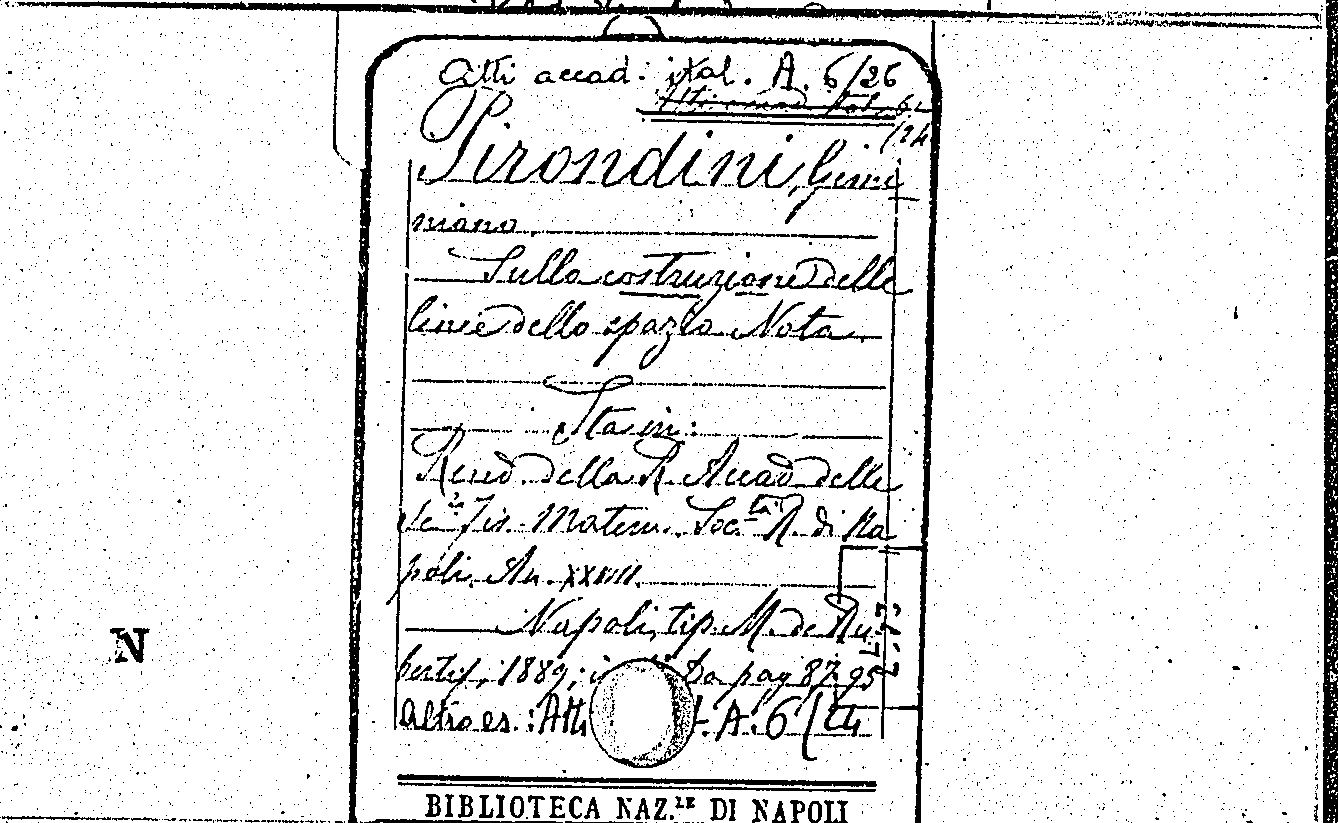 Atti accad. ital. A. 6/26
Atti accad. ital. A. 6
/24
Pirondini, Gemi
niano.
Sulla costruzione delle
linee dello spazio Nota.
Sta in:
Rend. della R. Accad. delle
Sc.ze Fis. Matem. Soc.tà R. di Na
poli. An. XXVIII.
Napoli, tip. M. de Ru
bertis, 1889; in da pag 87. 95
altro es.: Atti A. 6/24
N
BIBLIOTECA NAZ.LE DI NAPOLI